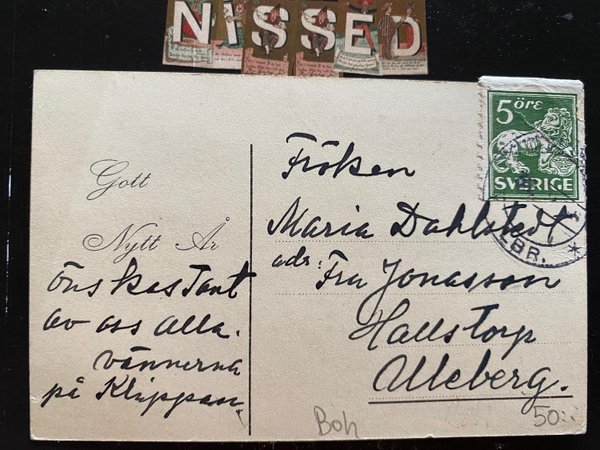 NISSED
Gott
Nytt År
önskas Tant
av oss alla.
vännerna
på Klippan
Fröken
Maria Dahlstedt
adr. Fru Jonasson
Hallstorp
Uleberg.
5 ÖRE
SVERIGE
LBR.
Boh
50:-